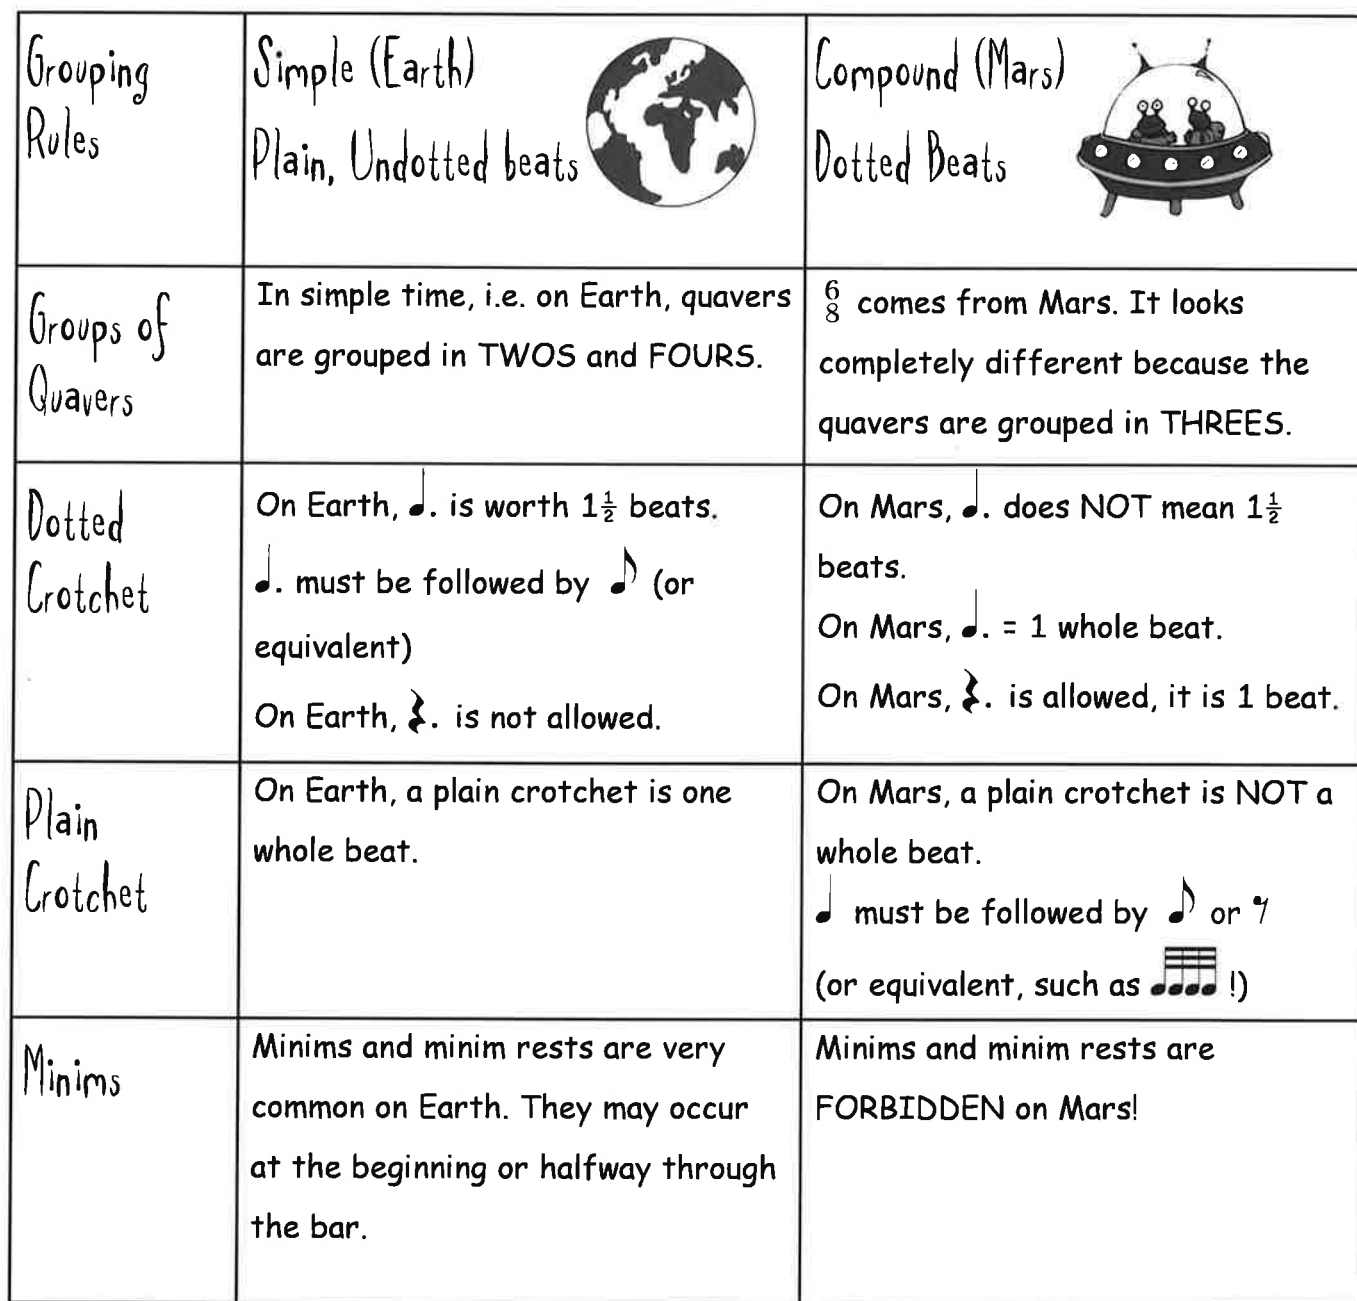 Grouping
Rules
Simple (Earth)
Plain, Undotted beats
Compound (Mars)
Dotted Beats
Groups of
Quavers
In simple time, i.e. on Earth, quavers
are grouped in TWOS and FOURS.
6/8 comes from Mars. It looks
completely different because the
quavers are grouped in THREES.
Dotted
Crotchet
On Earth, ♩. is worth 1½ beats.
♩. must be followed by ♪ (or
equivalent)
On Earth, 𝄽. is not allowed.
On Mars, ♩. does NOT mean 1½
beats.
On Mars, ♩. = 1 whole beat.
On Mars, 𝄽. is allowed, it is 1 beat.
Plain
Crotchet
On Earth, a plain crotchet is one
whole beat.
On Mars, a plain crotchet is NOT a
whole beat.
♩ must be followed by ♪ or 𝄾
(or equivalent, such as !)
Minims
Minims and minim rests are very
common on Earth. They may occur
at the beginning or halfway through
the bar.
Minims and minim rests are
FORBIDDEN on Mars!